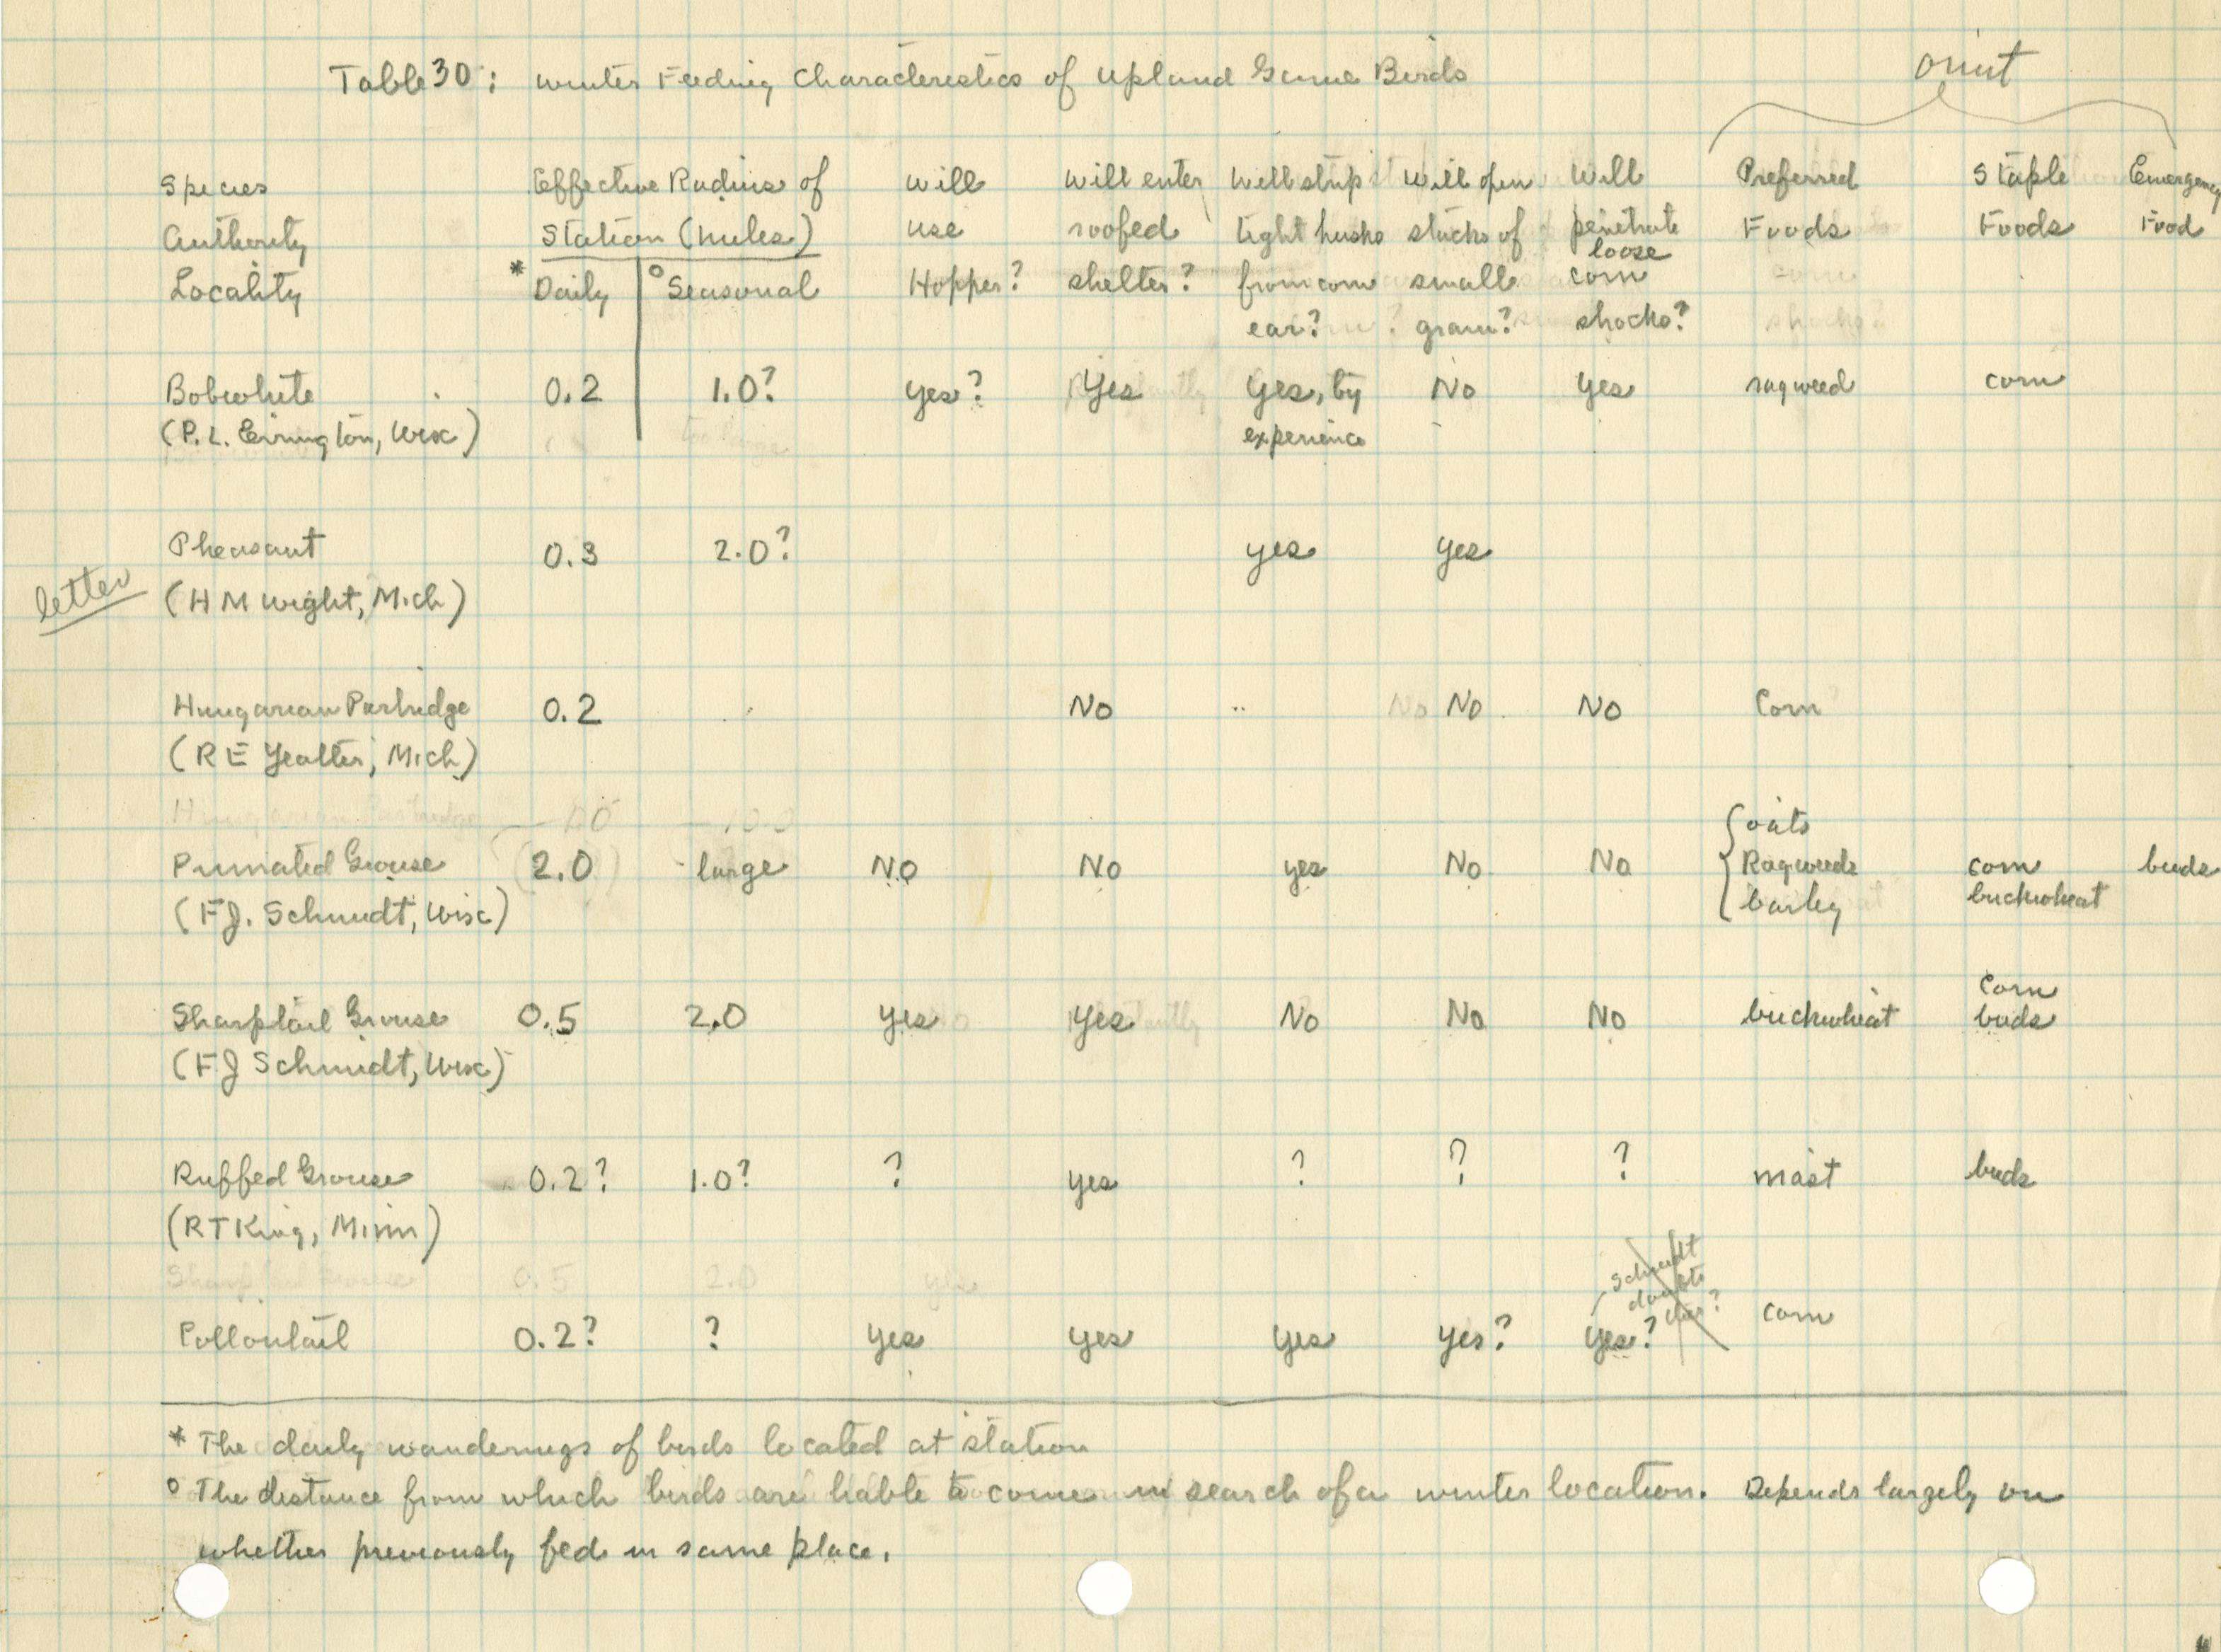 omit
Table 30: Winter Feeding Characteristics of Upland Game Birds
Species Effective Radius of Will Will enter Will strip Will open Will Preferred Staple Emergency
Authority Station (miles) use roofed tight husks stacks of penetrate Foods Foods Food
loose
Locality * Daily ° Seasonal Hopper? shelter? from corn small corn
ear? grain? shocks?
Bobwhite 0.2 1.0? yes? Yes Yes, by No Yes ragweed corn
(P. L. Errington, Wisc) experience
Pheasant 0.3 2.0? yes yes
letter (H M Wight, Mich)
Hungarian Partridge 0.2 No No No Corn
(R E Yeatter, Mich)
oats
Pinnated Grouse 2.0 large No No yes No No Ragweeds corn buds
(F J. Schmidt, Wisc) barley buckwheat
Corn
Sharptail Grouse 0.5 2.0 yes yes No No No buckwheat buds
(F J Schmidt, Wisc)
Ruffed Grouse 0.2? 1.0? ? yes ? ? ? mast buds
(R T King, Minn)
Schmidt
doubts
this?
Cottontail 0.2? ? yes yes yes yes? yes? corn
* The daily wanderings of birds located at station
° The distance from which birds are liable to come in search of a winter location. Depends largely on
whether previously fed in same place.